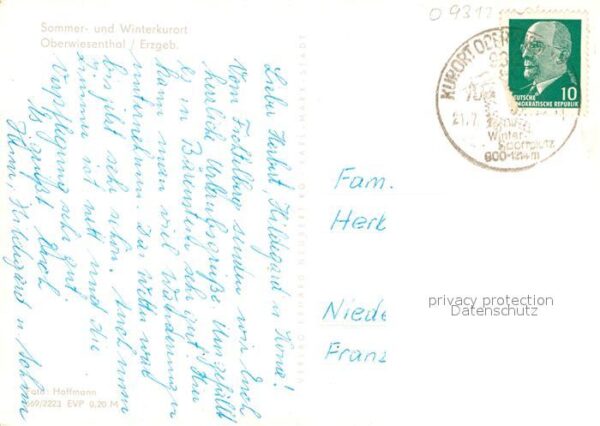 Sommer- und Winterkurort
Oberwiesenthal / Erzgeb.
Liebe Herbert, Hildegard u.
Vom Fichtelberg senden wir Euch
herzliche Urlaubsgrüße. Uns gefällt
es in Bärenstein sehr gut. Hier
kann man viel Wanderungen
unternehmen. Das Wetter war
bis jetzt sehr schön. Auch unser
Zimmer ist nett und die
Verpflegung sehr gut.
Es grüßt Euch
Hildegard u.
Foto: Hoffmann
EVP 0,20 M
VERLAG ERHARD NEUBERT KG KARL-MARX-STADT
O 9312
KURORT OBER
21.7.
Winter
Sportplatz
900-1214 m
10
DEUTSCHE
DEMOKRATISCHE REPUBLIK
Fam.
Herb
Niede
Franz
privacy protection
Datenschutz